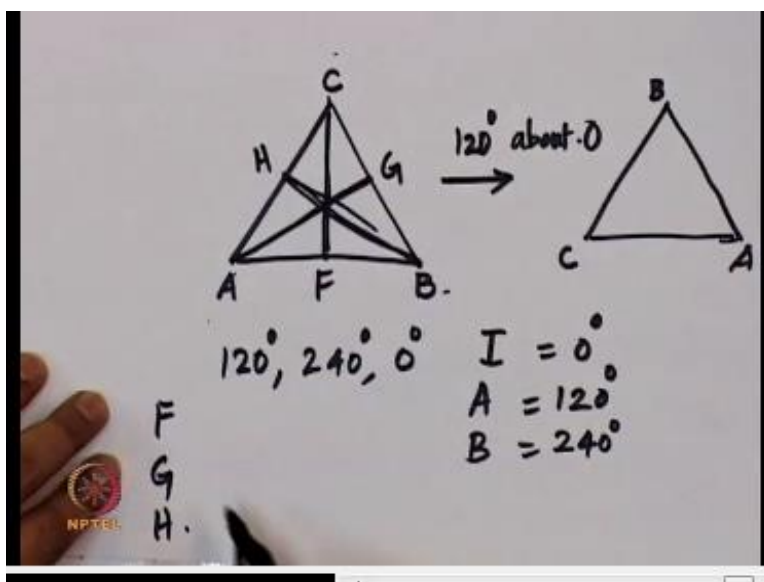 C
H
G
120° about O
B
A
F
B
C
A
120°, 240°, 0°
I = 0°
A = 120°
B = 240°
F
G
H
NPTEL